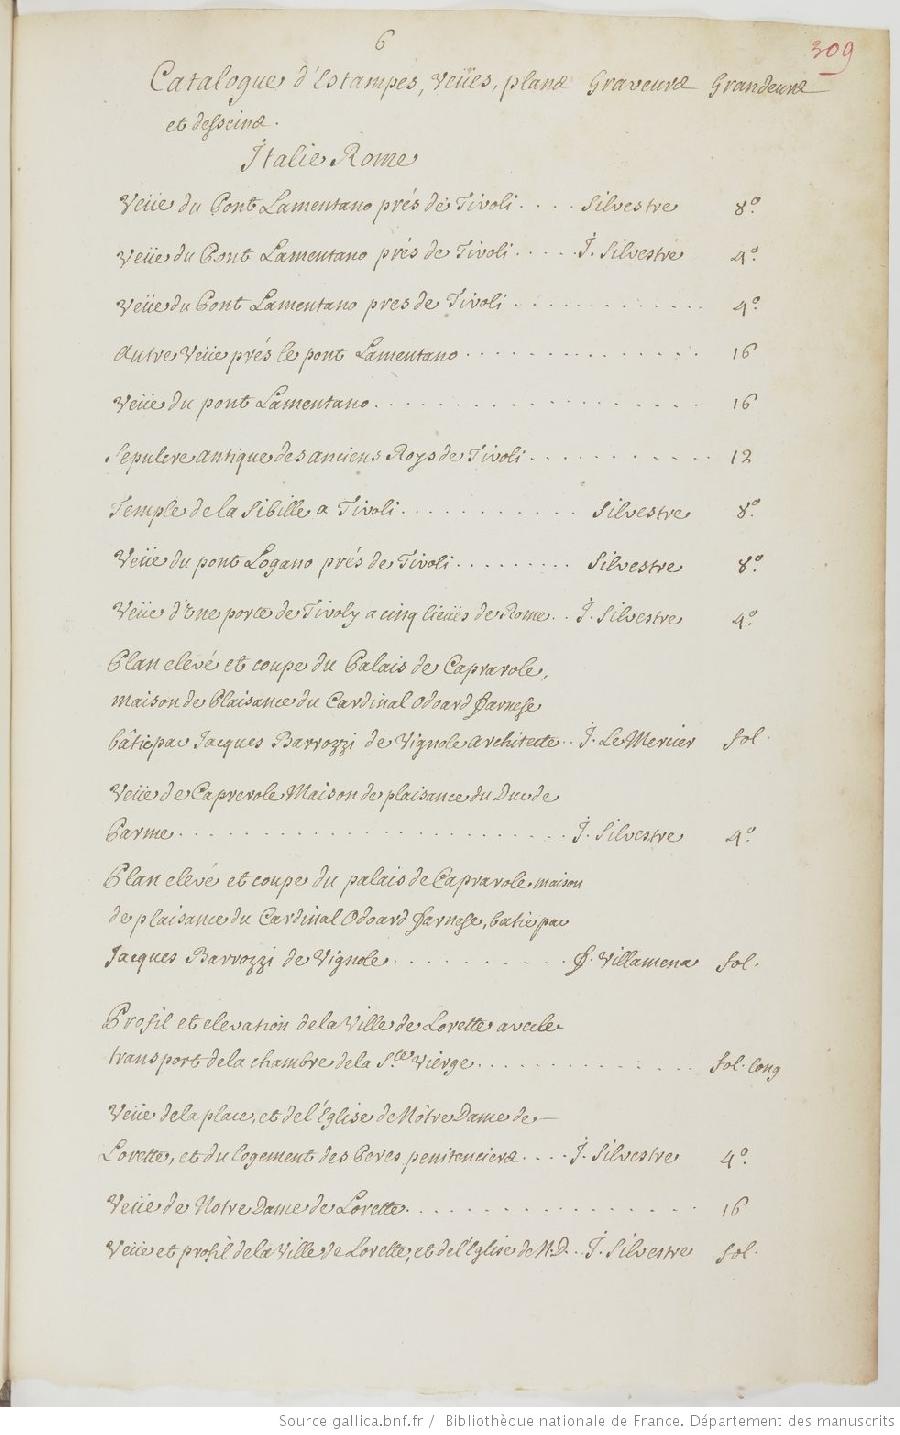 6
309
Catalogue d'Estampes, Veües, plans Graveurs Grandeurs
et desseins.
Italie Rome
Veüe du Pont Lamentano prés de Tivoli .... Silvestre 8º.
Veüe du Pont Lamentano prés de Tivoli ..... J. Silvestre 4º.
Veüe du Pont Lamentano pres de Tivoli ............. 4º.
Autre Veüe prés le pont Lamentano ............... 16
Veüe du pont Lamentano .................... 16
Sepulcre antique des anciens Roys de Tivoli ............ 12
Temple de la Sibille a Tivoli ............ Silvestre 8º.
Veüe du pont Logano prés de Tivoli ......... Silvestre 8º.
Veüe d'Une porte de Tivoly a cinq lieües de Rome .. J. Silvestre 4º.
Plan elevé et coupe du Palais de Capravole,
maison de Plaisance du Cardinal Odoard Farnese
bâtie par Jacques Barrozzi de Vignole Architecte .. J. Le Mercier fol.
Veüe de Caprevole Maison de plaisance du Duc de
Parme ......................... J. Silvestre 4º.
Plan elevé et coupe du palais de Capravole, maison
de plaisance du Cardinal Odoard Farnese, batie par
Jacques Barrozzi de Vignole ........... F. Villamena fol.
Profil et elevation de la Ville de Lorette avec le
transport de la chambre de la Ste. Vierge .............. fol. long
Veüe de la place, et de l'Eglise de Nôtre Dame de
Lorette, et du logement des Peres penitenciers .... J. Silvestre 4º.
Veüe de Notre Dame de Lorette ................. 16
Veüe et profil de la Ville de Lorette, et de l'Eglise de N.D. .. J. Silvestre fol.
Source gallica.bnf.fr / Bibliothèque nationale de France. Département des manuscrits